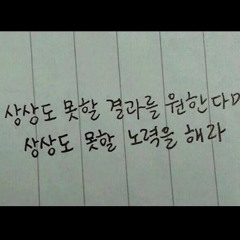 상상도 못할 결과를 원한다면
상상도 못할 노력을 해라